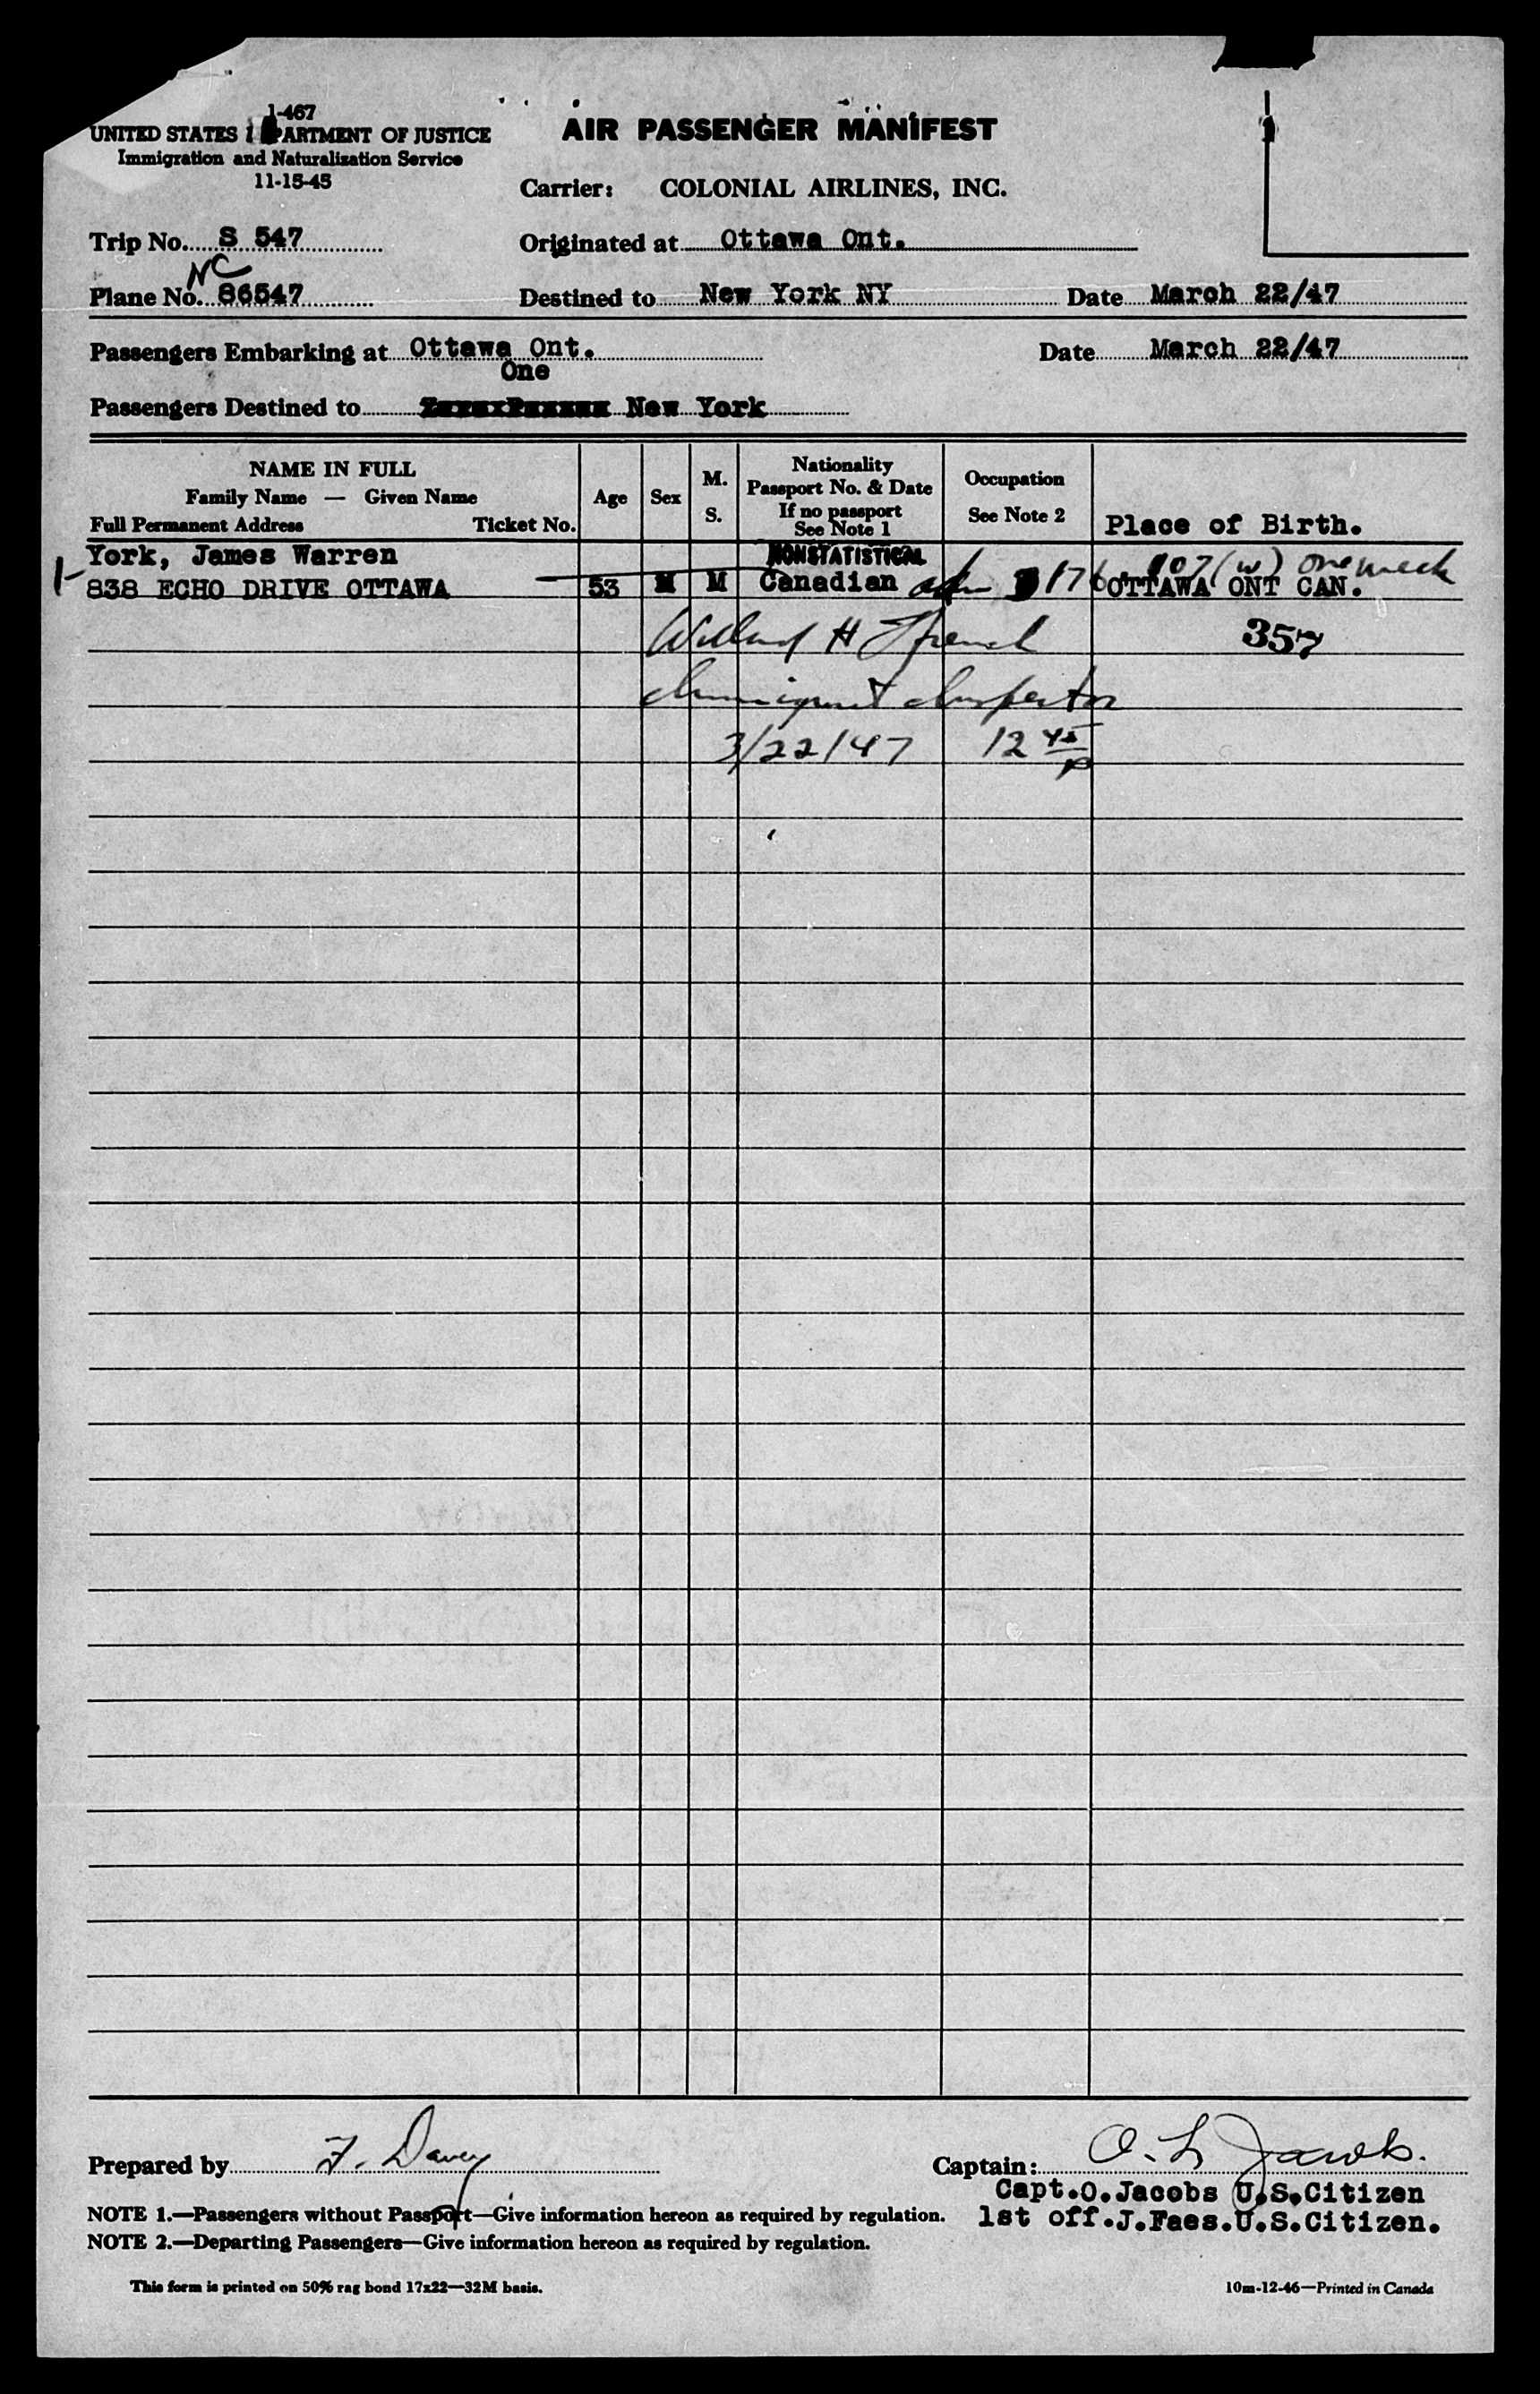 I-467
UNITED STATES DEPARTMENT OF JUSTICE
Immigration and Naturalization Service
11-15-45
AIR PASSENGER MANIFEST
Carrier: COLONIAL AIRLINES, INC.
Trip No. S 547
Originated at Ottawa Ont.
NC
Plane No. 86547
Destined to New York NY
Date March 22/47
Passengers Embarking at Ottawa Ont.
Date March 22/47
One
Passengers Destined to New York
NAME IN FULL
Family Name — Given Name
Full Permanent Address Ticket No.
Age
Sex
M. S.
Nationality
Passport No. & Date
If no passport
See Note 1
Occupation
See Note 2
Place of Birth.
York, James Warren NONSTATISTICAL 107(w) one week
1- 838 ECHO DRIVE OTTAWA 53 M M Canadian adm 176 OTTAWA ONT CAN.
Willard H French 357
Immigrant Inspector
3/22/47 12 45 p
Prepared by F. Davey
Captain: O. L. Jacobs.
Capt.O.Jacobs U.S.Citizen
1st off.J.Faes.U.S.Citizen.
NOTE 1.—Passengers without Passport—Give information hereon as required by regulation.
NOTE 2.—Departing Passengers—Give information hereon as required by regulation.
This form is printed on 50% rag bond 17x22—32M basis.
10m-12-46—Printed in Canada